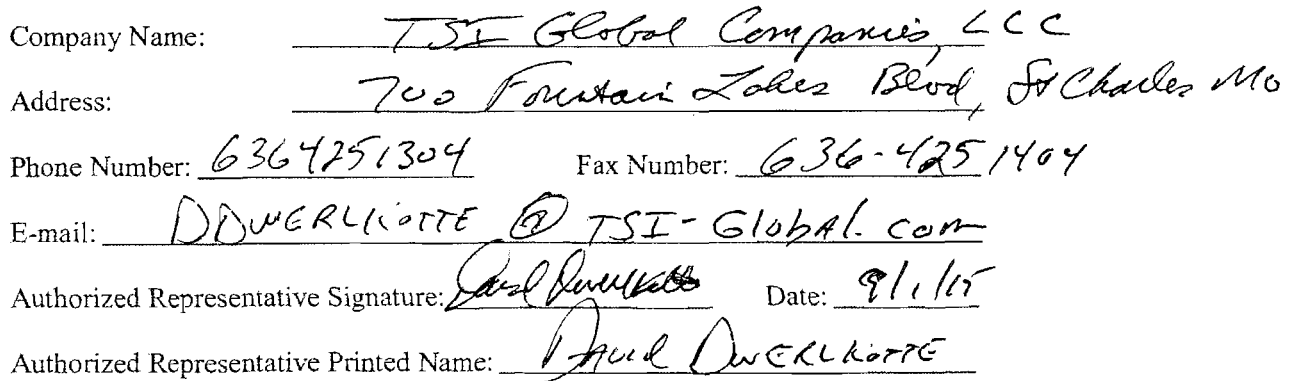 Company Name: TSI Global Companies, LCC
Address: 700 Fountain Lakes Blvd, St Charles Mo
Phone Number: 6364251304 Fax Number: 636-4251404
E-mail: DDWERLKOTTE @ TSI-Global.com
Authorized Representative Signature: David Dwerlkotte Date: 9/1/15
Authorized Representative Printed Name: David DWERLKOTTE